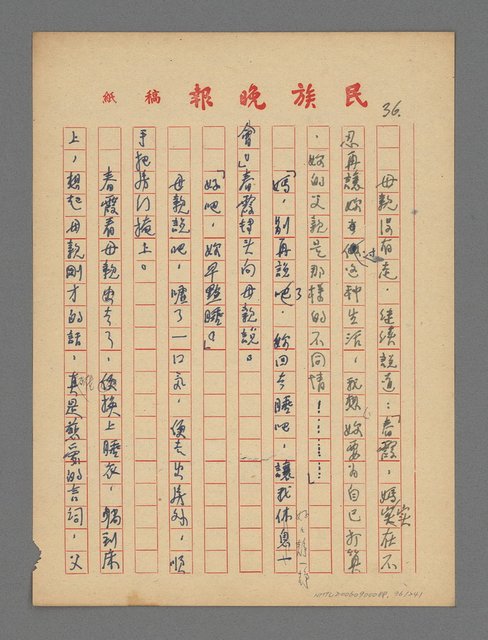 民族晚報 稿紙
36.
母親沒有走，继续說道：「春霞，媽实在不
忍再讓妳過這种生活，我想妳要為自已打算
，妳的父親是那樣的不同情！………」
「媽，別再說了吧，妳回去睡吧，讓我休息一
會」春霞轉头向母親說。
「好吧，妳早點睡吧」
母親說吧，嘆了一口氣，便走出房外，順
手把房门掩上。
春霞看母親出去了，便換上睡衣，躺到床
上，想起母親剛才的話，真是慈愛的言詞，父